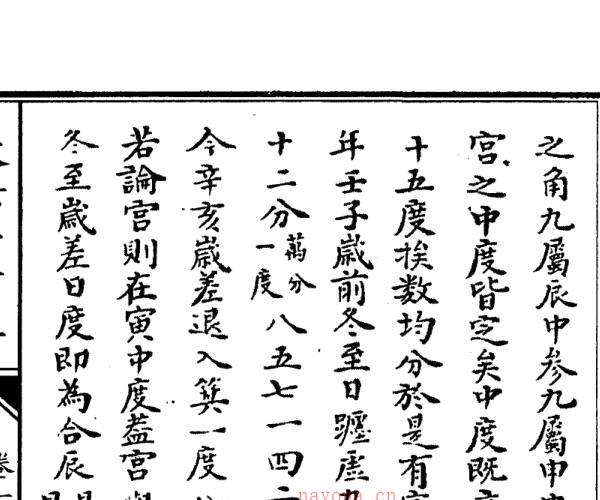 之角九屬辰中参九屬申
宮之中度皆定矣中度既
十五度挨數均分於是有
年壬子歲前冬至日躔虛
十二分萬分一度八五七一四二
今辛亥歲差退入箕一度
若論宮則在寅中度葢宮
冬至歲差日度即為合辰
nayona.cn